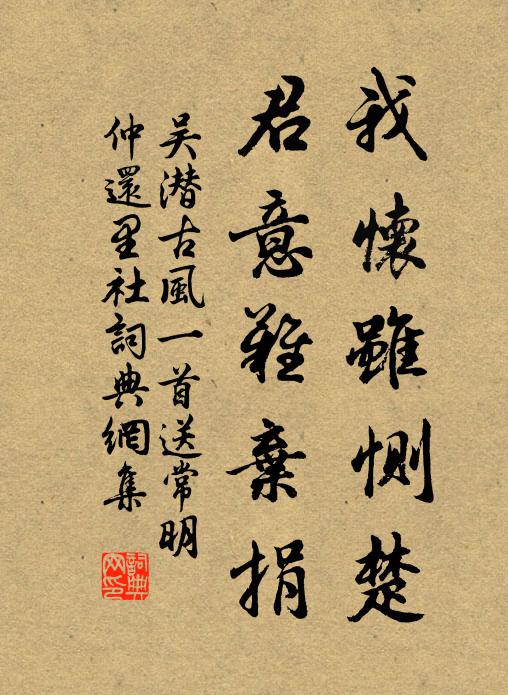 我懷雖惻楚
君意難棄捐
吴潜古風一首送常明
仲還里社詞典網集
詞典網印